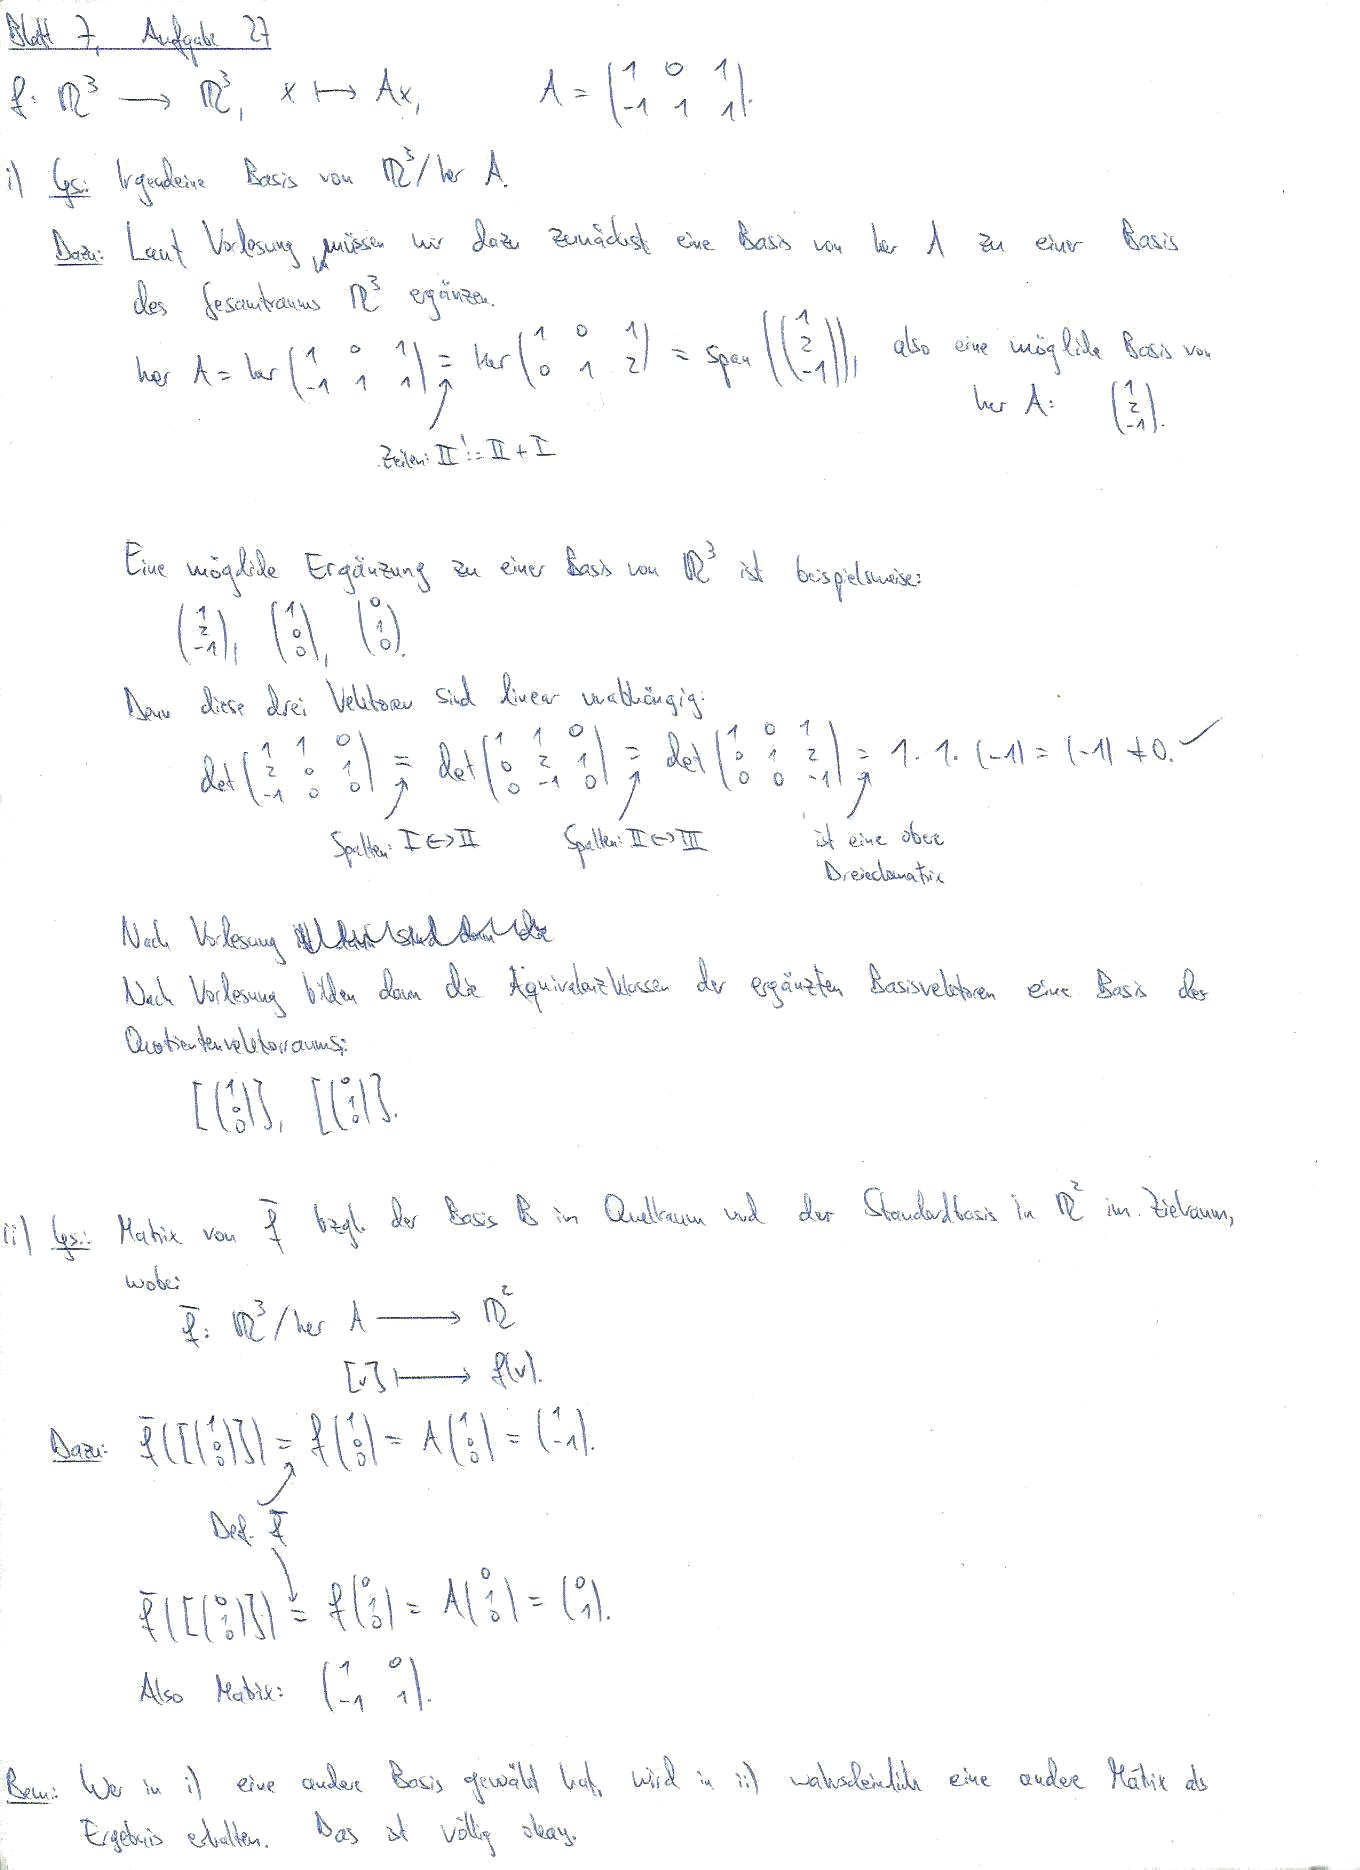 Blatt 7, Aufgabe 27
f: ℝ³ ⟶ ℝ³, x ⟼ Ax, A = (1 0 1; -1 1 1).
i) Ges: Irgendeine Basis von ℝ³/ker A.
Dazu: Laut Vorlesung müssen wir dazu zunächst eine Basis von ker A zu einer Basis
des Gesamtraums ℝ³ ergänzen.
ker A = ker (1 0 1; -1 1 1) = ker (1 0 1; 0 1 2) = span((1; 2; -1)), also eine mögliche Basis von
ker A: (1; 2; -1).
Zeilen: II' := II + I
Eine mögliche Ergänzung zu einer Basis von ℝ³ ist beispielsweise:
(1; 2; -1), (1; 0; 0), (0; 1; 0).
Denn diese drei Vektoren sind linear unabhängig:
det (1 1 0; 2 0 1; -1 0 0) = det (1 1 0; 0 2 1; 0 -1 0) = det (1 0 1; 0 1 2; 0 0 -1) = 1 · 1 · (-1) = (-1) ≠ 0. ✓
Spalten: I ↔ II Spalten: II ↔ III ist eine obere
Dreiecksmatrix
Nach Vorlesung
Nach Vorlesung bilden dann die Äquivalenzklassen der ergänzten Basisvektoren eine Basis des
Quotientenvektorraums:
[(1; 0; 0)], [(0; 1; 0)].
ii) Ges.: Matrix von f̄ bzgl. der Basis B im Quellraum und der Standardbasis in ℝ² im Zielraum,
wobei
f̄: ℝ³/ker A ⟶ ℝ²
[v] ⟼ f(v).
Dazu: f̄([(1; 0; 0)]) = f(1; 0; 0) = A(1; 0; 0) = (1; -1).
Def. f̄
f̄([(0; 1; 0)]) = f(0; 1; 0) = A(0; 1; 0) = (0; 1).
Also Matrix: (1 0; -1 1).
Bem.: Wer in i) eine andere Basis gewählt hat, wird in ii) wahrscheinlich eine andere Matrix als
Ergebnis erhalten. Das ist völlig okay.